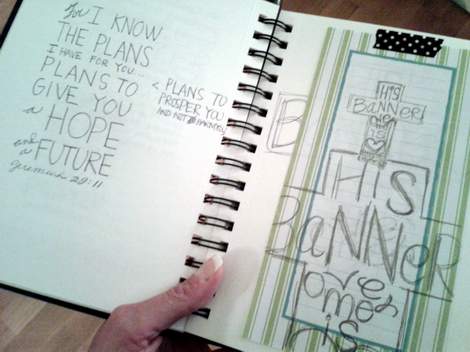 for I KNOW
THE PLANS
I HAVE FOR YOU...
PLANS TO
GIVE YOU
a HOPE
and
a FUTURE
Jeremiah 29:11
< PLANS TO
PROSPER YOU
AND NOT HARM YOU
B
HIS
BANNER
IS
HIS
BANNER
IS